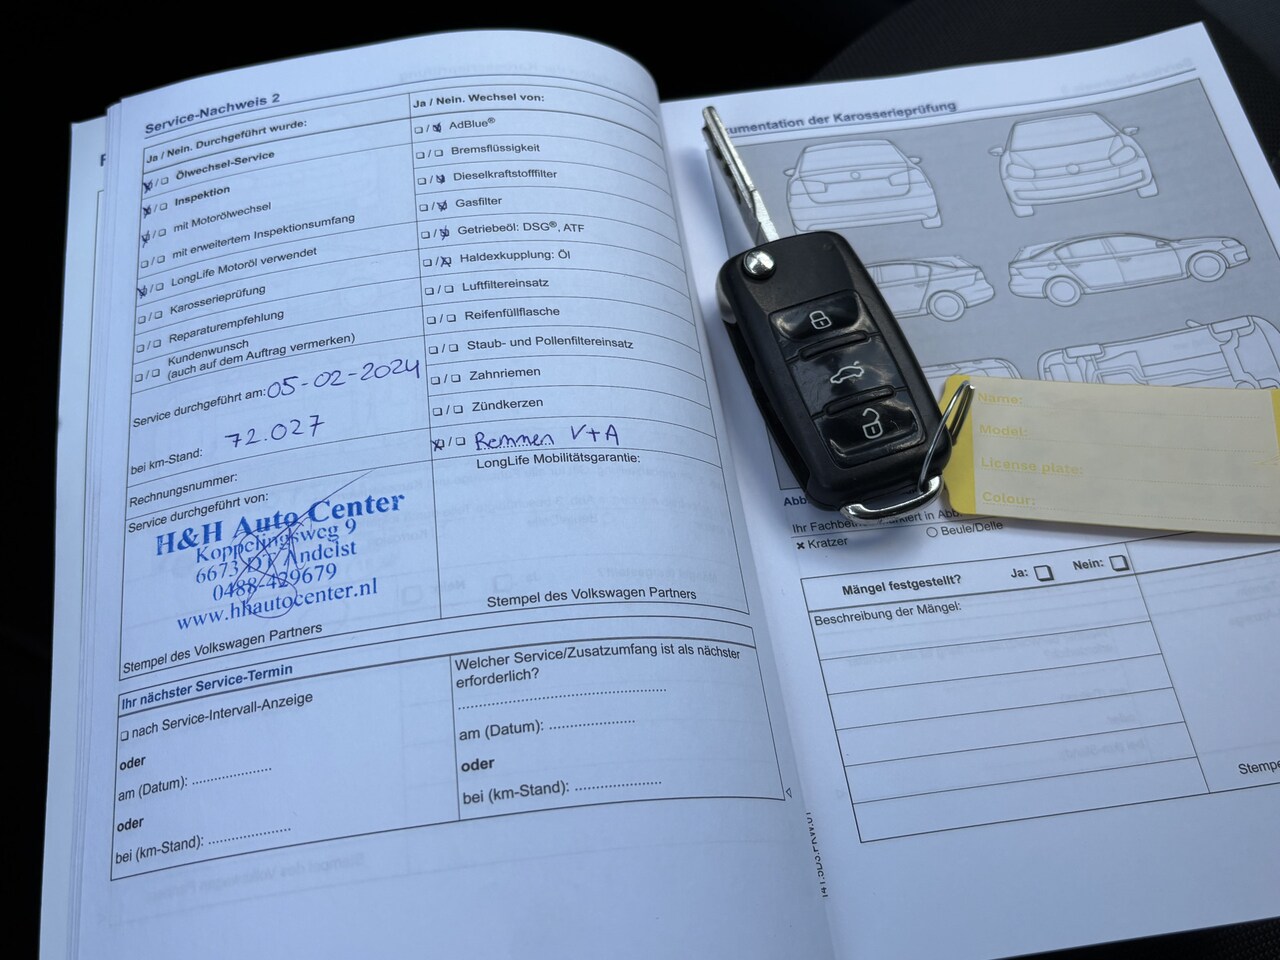 Service-Nachweis 2
Ja / Nein. Durchgeführt wurde:
☒/☐ Ölwechsel-Service
☒/☐ Inspektion
☒/☐ mit Motorölwechsel
☐/☐ mit erweitertem Inspektionsumfang
☒/☐ LongLife Motoröl verwendet
☐/☐ Karosserieprüfung
☐/☐ Reparaturempfehlung
☐/☐ Kundenwunsch
(auch auf dem Auftrag vermerken)
Service durchgeführt am: 05-02-2024
bei km-Stand: 72.027
Rechnungsnummer:
Service durchgeführt von:
H&H Auto Center
Koppelingsweg 9
6673 DT Andelst
0488-429679
www.hhautocenter.nl
Stempel des Volkswagen Partners
Ja / Nein. Wechsel von:
☐/☒ AdBlue®
☐/☐ Bremsflüssigkeit
☐/☒ Dieselkraftstofffilter
☐/☒ Gasfilter
☐/☒ Getriebeöl: DSG®, ATF
☐/☒ Haldexkupplung: Öl
☐/☐ Luftfiltereinsatz
☐/☐ Reifenfüllflasche
☐/☐ Staub- und Pollenfiltereinsatz
☐/☐ Zahnriemen
☐/☐ Zündkerzen
☒/☐ Remmen V+A
LongLife Mobilitätsgarantie:
Stempel des Volkswagen Partners
Ihr nächster Service-Termin
☐ nach Service-Intervall-Anzeige
oder
am (Datum): ....................
oder
bei (km-Stand): ....................
Welcher Service/Zusatzumfang ist als nächster
erforderlich?
..................................................
am (Datum): ....................
oder
bei (km-Stand): ....................
umentation der Karosserieprüfung
Name:
Model:
License plate:
Colour:
Abb
Ihr Fachbetrieb markiert in Abb.
× Kratzer ○ Beule/Delle
Mängel festgestellt? Ja: ☐ Nein: ☐
Beschreibung der Mängel:
Stempe